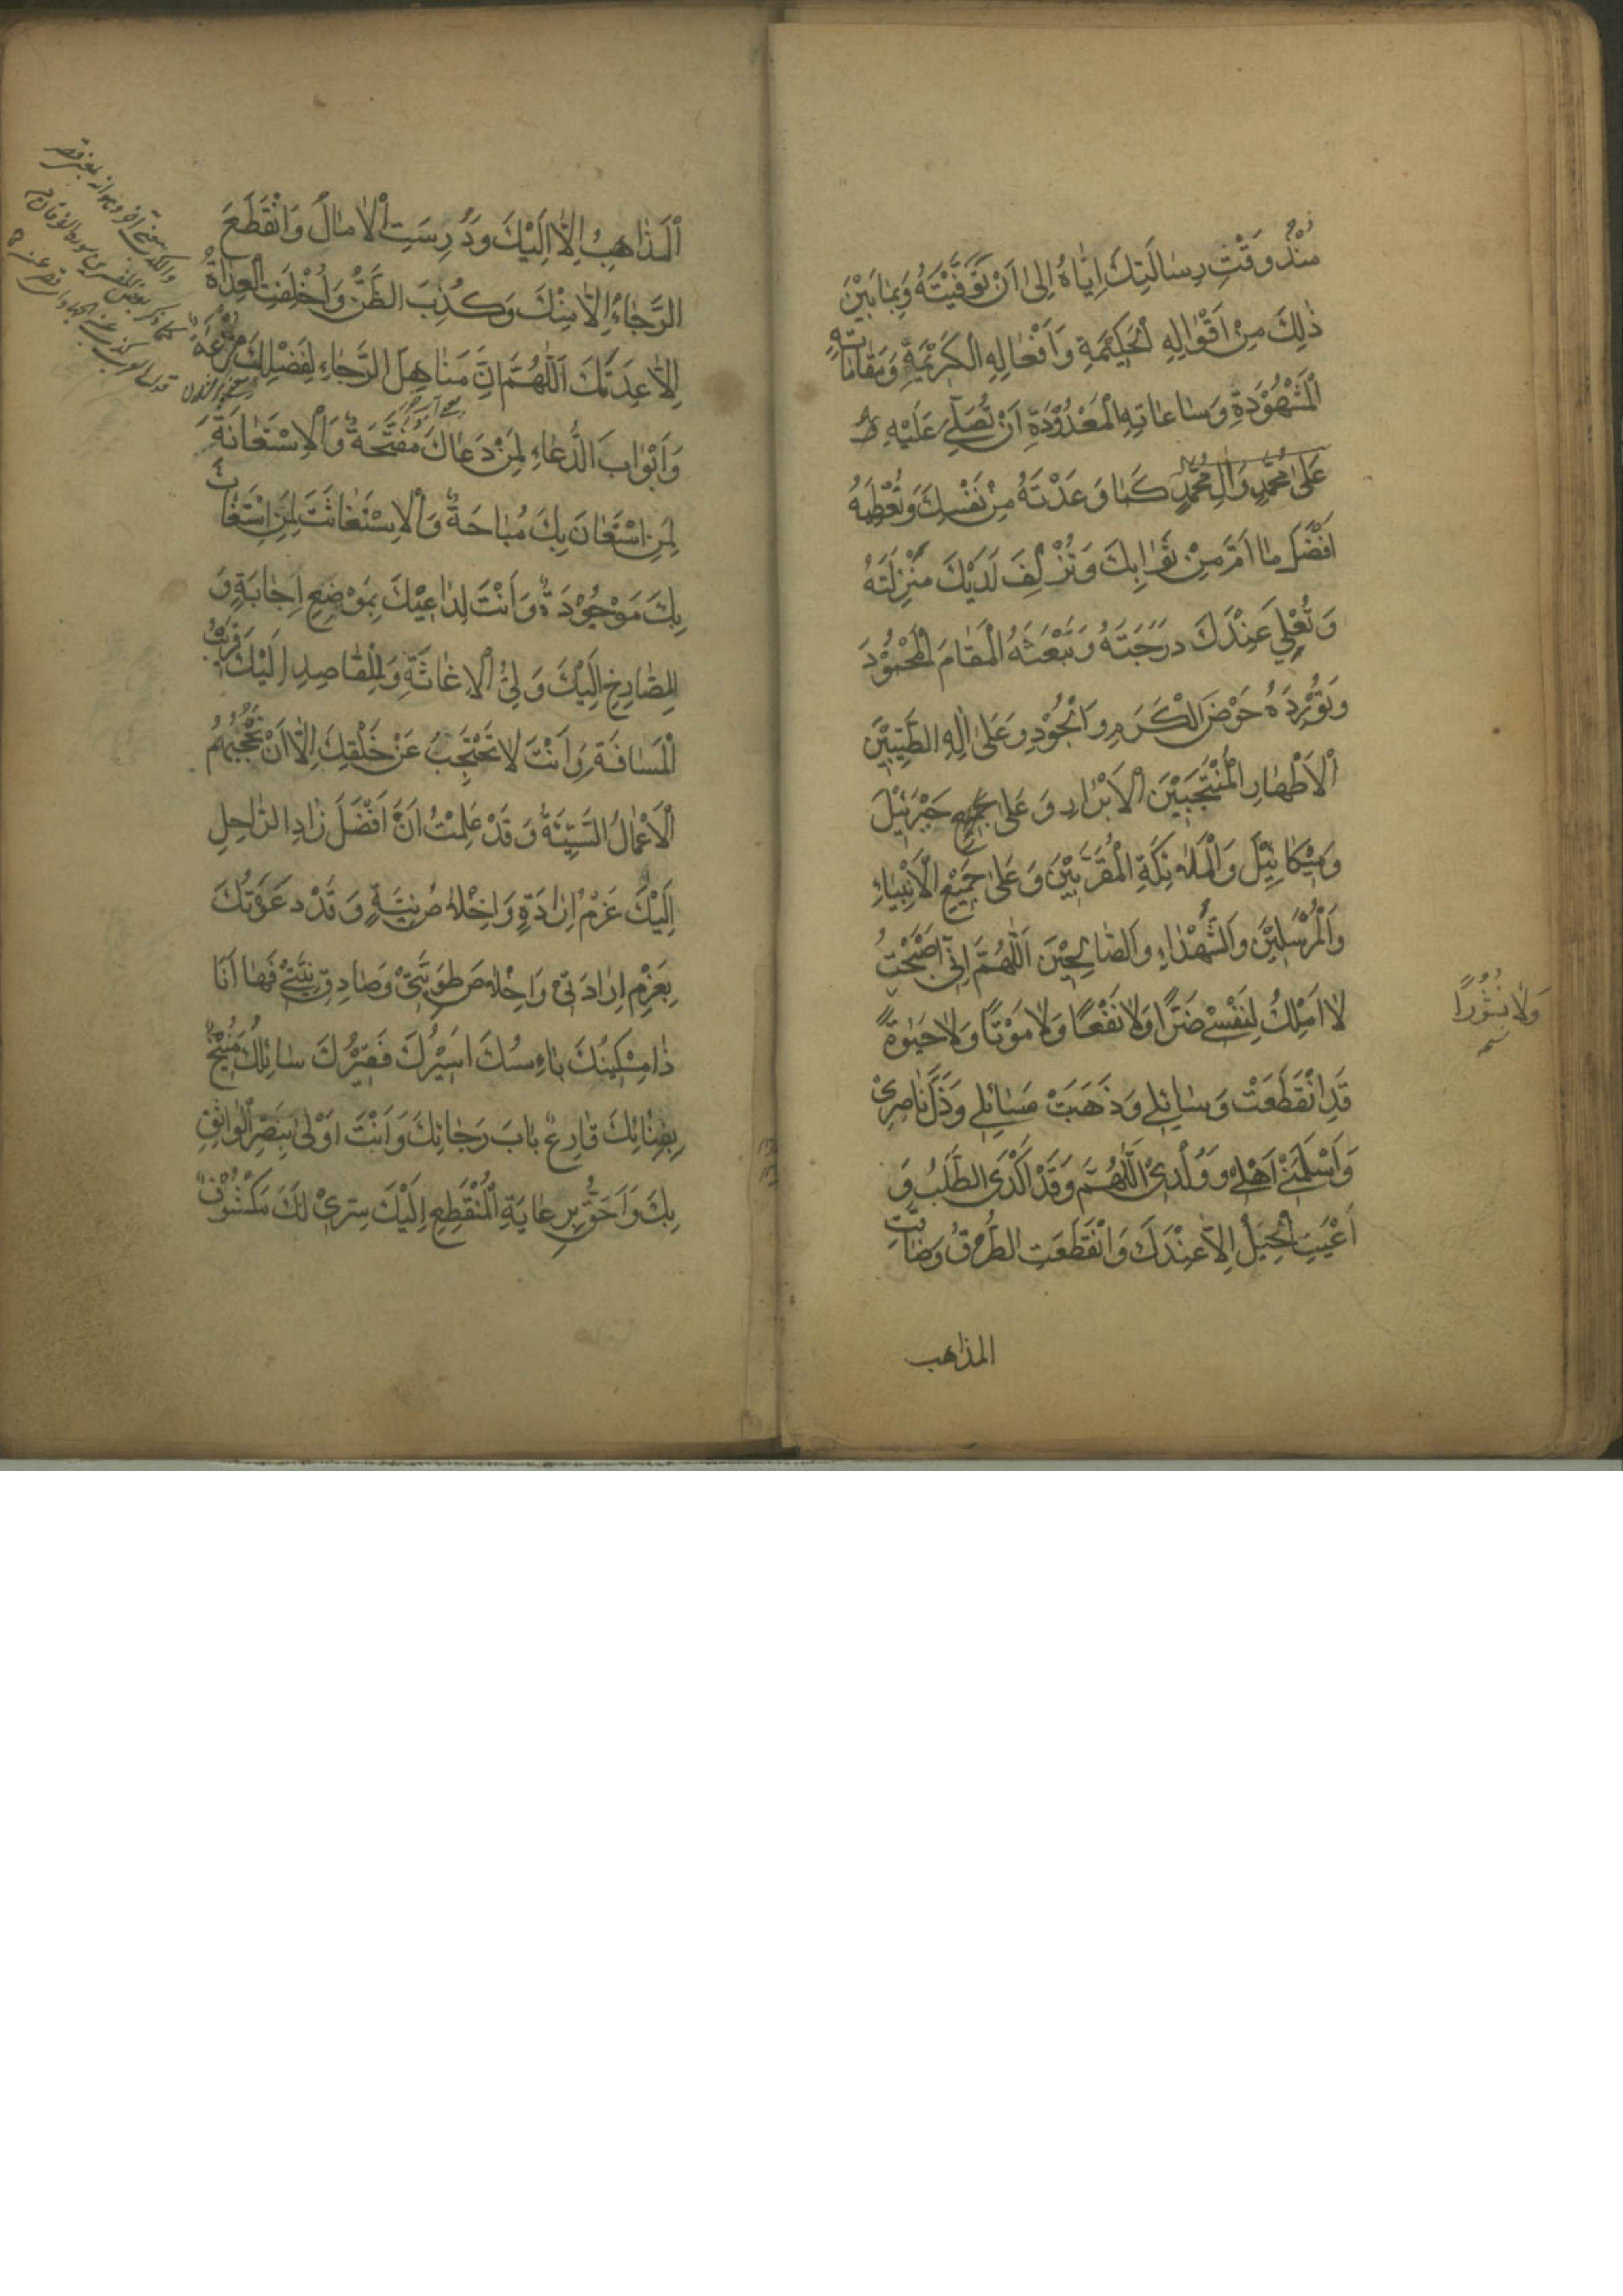 مُنْذُ وَقْتِ رِسٰالَتِكَ اِيّٰاهُ اِلىٰ اَنْ تَوَفَّيْتَهُ وَبِمٰا بَيْنَ
ذٰلِكَ مِنْ اَقْوٰالِهِ الْحَكِيْمَةِ وَاَفْعٰالِهِ الْكَرِيْمَةِ وَمَقٰامٰاتِهِ
الْمَشْهُوْدَةِ وَسٰاعٰاتِهِ الْمَعْدُوْدَةِ اَنْ تُصَلِّيَ عَلَيْهِ
عَلىٰ مُحَمَّدٍ وَاٰلِ مُحَمَّدٍ كَمٰا وَعَدْتَهُ مِنْ نَفْسِكَ وَتُعْطِيَهُ
اَفْضَلَ مٰا اَمَّلَ مِنْ ثَوٰابِكَ وَتُزْلِفَ لَدَيْكَ مَنْزِلَتَهُ
وَتُعْلِيَ عِنْدَكَ دَرَجَتَهُ وَتَبْعَثَهُ الْمَقٰامَ الْمَحْمُوْدَ
وَتُوْرِدَهُ حَوْضَ الْكَرَمِ وَالْجُوْدِ وَعَلىٰ اٰلِهِ الطَّيِّبِيْنَ
الْاَطْهٰارِ الْمُنْتَجَبِيْنَ الْاَبْرٰارِ وَعَلىٰ جَمِيْعِ جَبْرَئِيْلَ
وَمِيْكٰائِيْلَ وَالْمَلٰائِكَةِ الْمُقَرَّبِيْنَ وَعَلىٰ جَمِيْعِ الْاَنْبِيٰاءِ
وَالْمُرْسَلِيْنَ وَالشُّهَدٰاءِ وَالصّٰالِحِيْنَ اَللّٰهُمَّ اِنِّيْ اَصْبَحْتُ
لٰا اَمْلِكُ لِنَفْسِيْ ضَرًّا وَلٰا نَفْعًا وَلٰا مَوْتًا وَلٰا حَيٰوةً
وَلٰا نُشُوْرًا
قَدِ انْقَطَعَتْ وَسٰائِلِيْ وَذَهَبَتْ مَسٰائِلِيْ وَذَلَّ نٰاصِرِيْ
وَاَسْلَمَنِيْ اَهْلِيْ وَوُلْدِيْ اَللّٰهُمَّ وَقَدْ اَكْدَى الطَّلَبُ وَ
اَعْيَتِ الْحِيَلُ اِلّٰا عِنْدَكَ وَانْقَطَعَتِ الطُّرُقُ وَضٰاقَتِ
المذاهب
الْمَذٰاهِبُ اِلّٰا اِلَيْكَ وَدُرِسَتِ الْاٰمٰالُ وَانْقَطَعَ
الرَّجٰاءُ اِلّٰا مِنْكَ وَكُذِبَ الظَّنُّ وَاُخْلِفَتِ الْعِدٰاةُ
اِلّٰا عِدَتَكَ اَللّٰهُمَّ اِنَّ مَنٰاهِلَ الرَّجٰاءِ لِفَضْلِكَ مُتْرَعَةٌ
وَاَبْوٰابَ الدُّعٰاءِ لِمَنْ دَعٰاكَ مُفَتَّحَةٌ وَالْاِسْتِعٰانَةَ
لِمَنِ اسْتَعٰانَ بِكَ مُبٰاحَةٌ وَالْاِسْتِغٰاثَةَ لِمَنِ اسْتَغٰاثَ
بِكَ مَوْجُوْدَةٌ وَاَنْتَ لِدٰاعِيْكَ بِمَوْضِعِ اِجٰابَةٍ وَ
لِلصّٰارِخِ اِلَيْكَ وَلِيُّ الْاِغٰاثَةِ وَلِلْقٰاصِدِ اِلَيْكَ قَرِيْبُ
الْمَسٰافَةِ وَاَنْتَ لٰا تَحْتَجِبُ عَنْ خَلْقِكَ اِلّٰا اَنْ تَحْجُبَهُمُ
الْاَعْمٰالُ السَّيِّئَةُ وَقَدْ عَلِمْتُ اَنَّ اَفْضَلَ زٰادِ الرّٰاحِلِ
اِلَيْكَ عَزْمُ اِرٰادَةٍ وَاِخْلٰاصُ نِيَّةٍ وَقَدْ دَعَوْتُكَ
بِعَزْمِ اِرٰادَتِيْ وَاِخْلٰاصِ طَوِيَّتِيْ وَصٰادِقِ نِيَّتِيْ فَهٰا اَنَا
ذٰا مِسْكِيْنُكَ بٰاءِسُكَ اَسِيْرُكَ فَقِيْرُكَ سٰائِلُكَ مُنِيْخٌ
بِفِنٰائِكَ قٰارِعٌ بٰابَ رَجٰائِكَ وَاَنْتَ اَوْلىٰ بِنَصْرِ الْوٰاثِقِ
بِكَ وَاَحَقُّ بِرِعٰايَةِ الْمُنْقَطِعِ اِلَيْكَ سِرِّيْ لَكَ مَكْشُوْفٌ